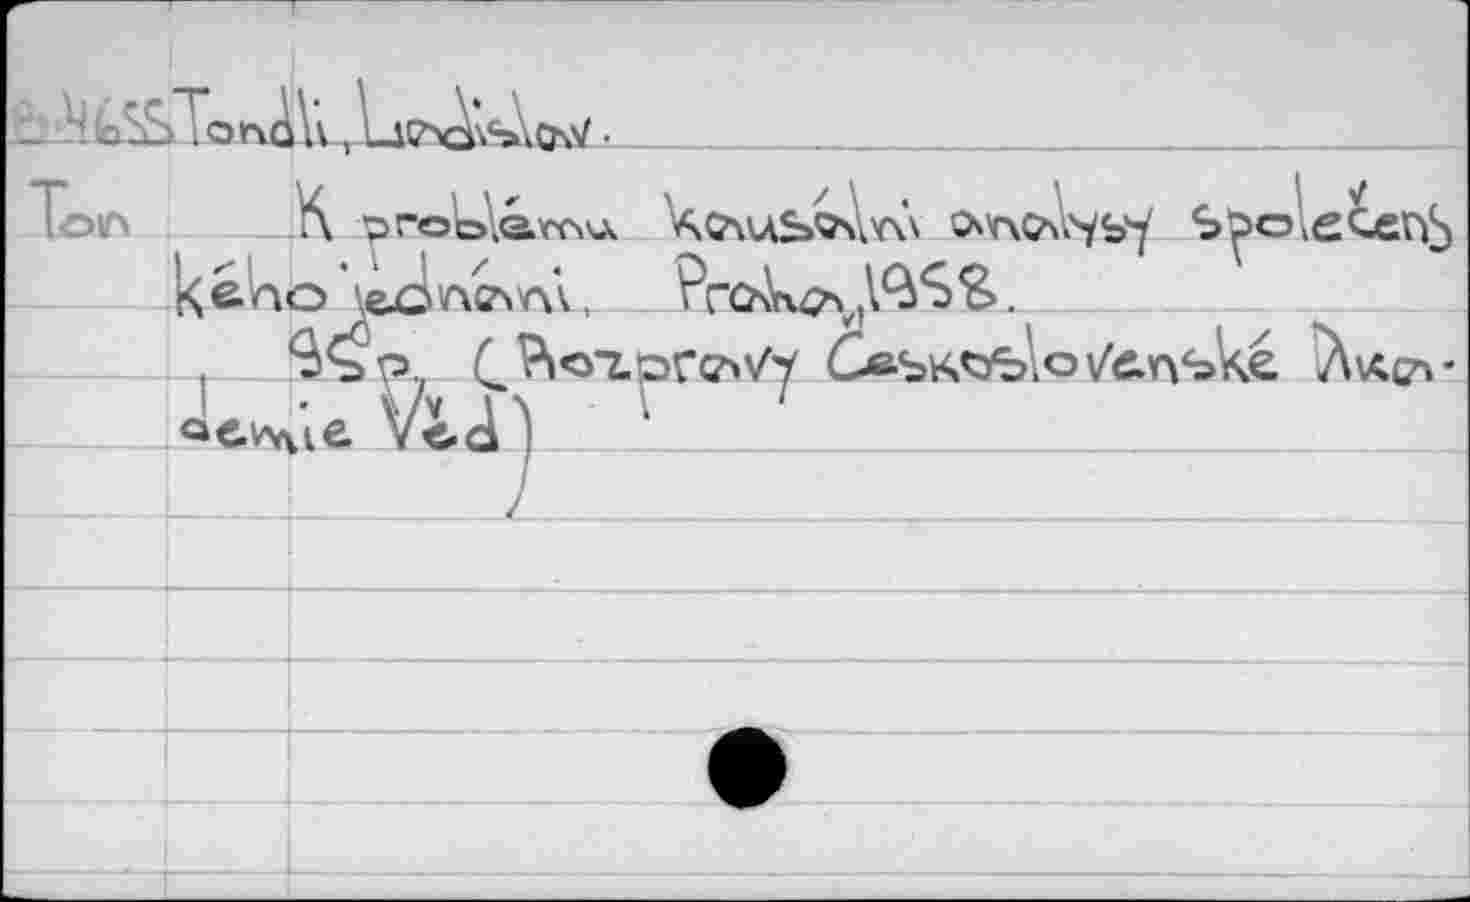 Tondl, Ladislav.
Ton K problému kausální analysy společens
kého jednání, Praha, 1958.
95p. (Rozpravy Československé Aka-
demie Věd)